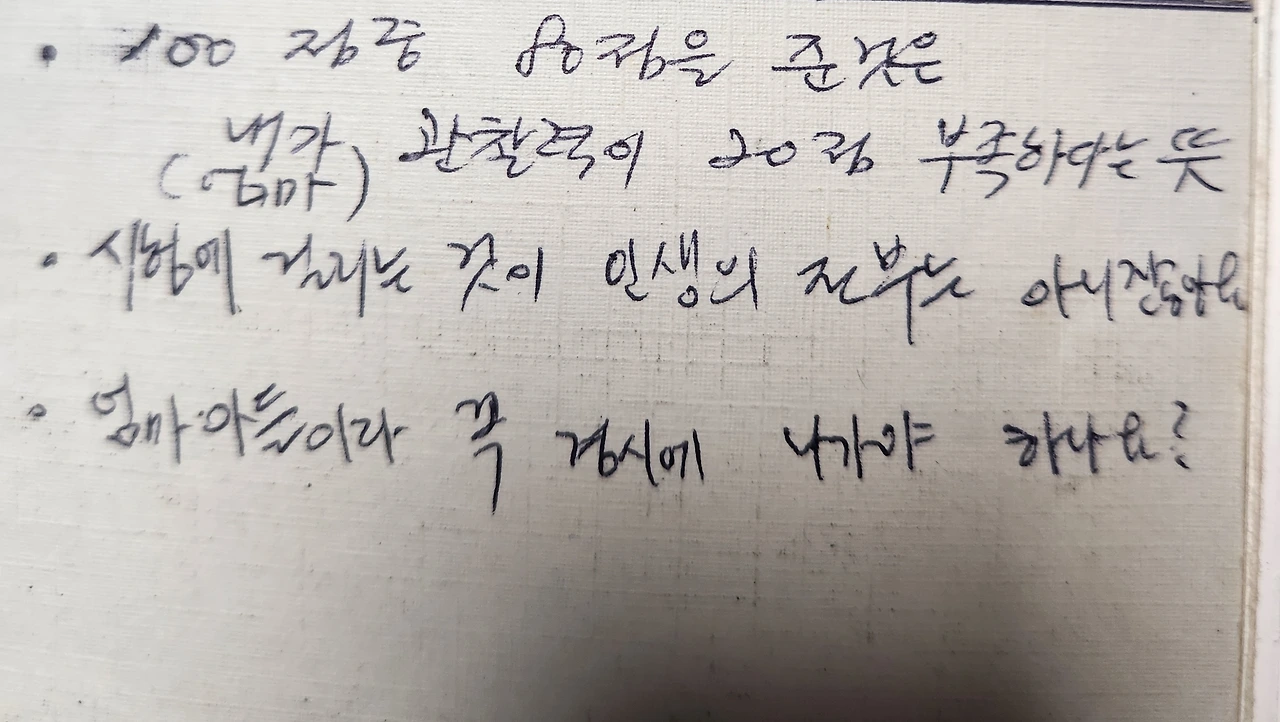 · 100 점중 80점을 준것은
내가
(엄마) 관찰력이 20점 부족하다는 뜻
· 시험에 걸리는 것이 인생의 전부는 아니잖아요
· 엄마아들이라 꼭 경시에 나가야 하나요?